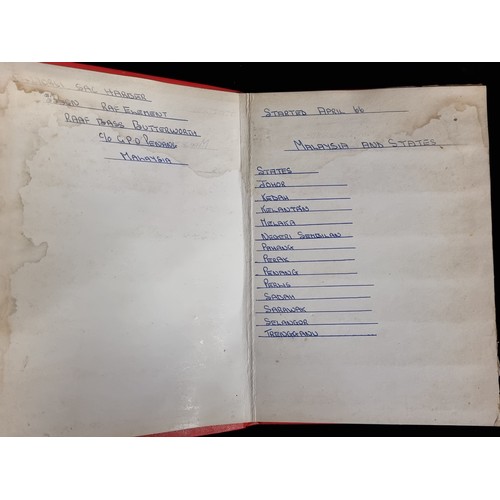 SAC HARDER
RAF ELEMENT
RAAF BASE BUTTERWORTH
C/O G.P.O PENANG
MALAYSIA
STARTED APRIL 66
MALAYSIA AND STATES
STATES
JOHOR
KEDAH
KELANTAN
MELAKA
NEGERI SEMBILAN
PAHANG
PERAK
PENANG
PERLIS
SABAH
SARAWAK
SELANGOR
TRENGGANU